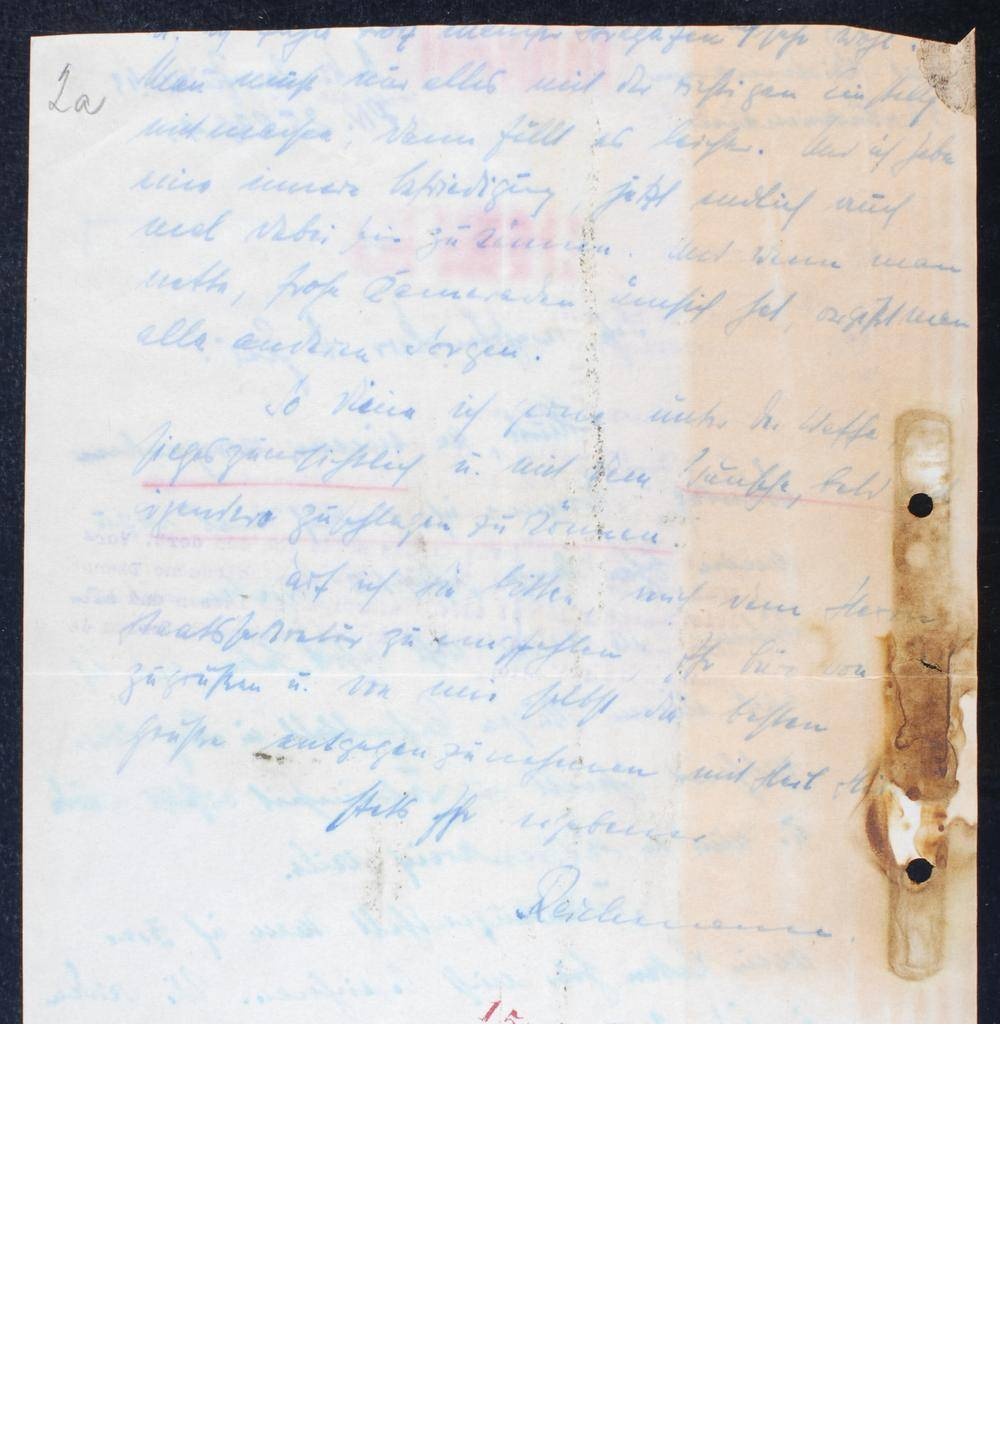 2a
u. ich fühle trotz mancher Strapazen sehr wohl.
Man muß nur alles mit der richtigen Einstellg
mitmachen, dann fällt es leichter. Und ich habe
eine innere Befriedigung, jetzt endlich auch
mal dabei sein zu können. Und wenn man
nette, frohe Kameraden um sich hat, vergißt man
alle anderen Sorgen.
So diene ich gerne unter der Waffe,
siegeszuversichtlich u. mit dem Wunsche, bald
irgendwo zuschlagen zu können.
Darf ich Sie bitten, mich dem Herrn
Staatssekretär zu empfehlen, Ihr Büro von
zu grüßen u. von mir selbst die besten
Grüße entgegenzunehmen mit Heil Hi
Stets Ihr ergebener